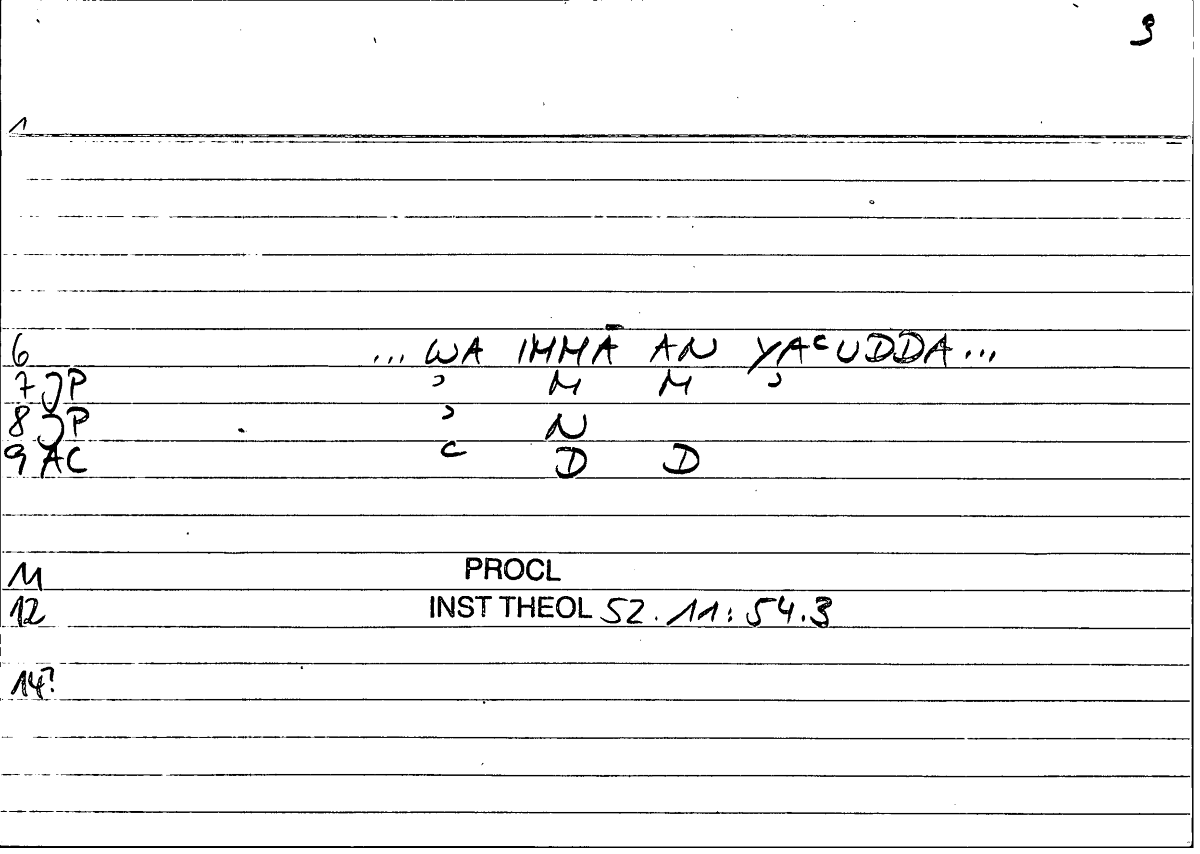 3
1
6 ... WA IMMĀ AN YAᶜUDDA ...
7 JP ʾ M M ʾ
8 JP ʾ N
9 AC ᶜ D D
11 PROCL
12 INST THEOL 52.11:54.3
14?